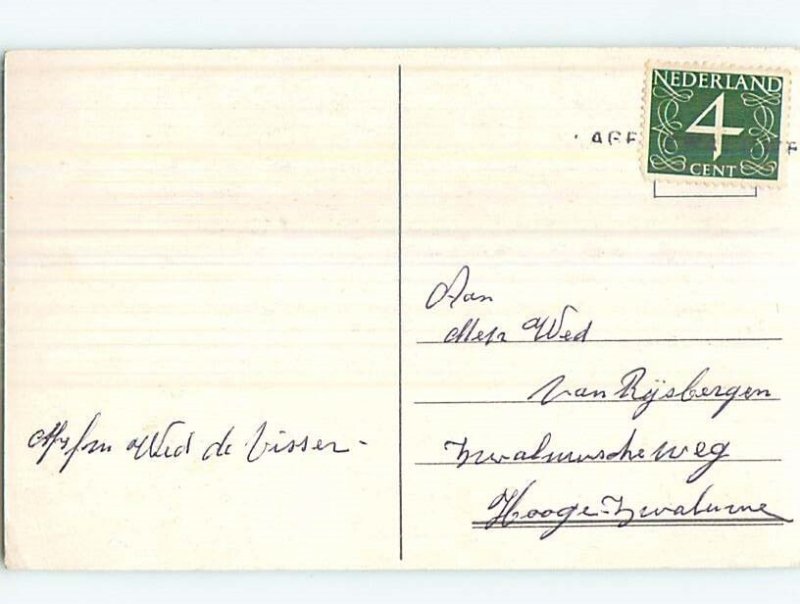 NEDERLAND
4
CENT
Aan
Mej. Wed
van Rijsbergen
Zwaluwscheweg
Hooge-Zwaluwe
Wed de Visser-